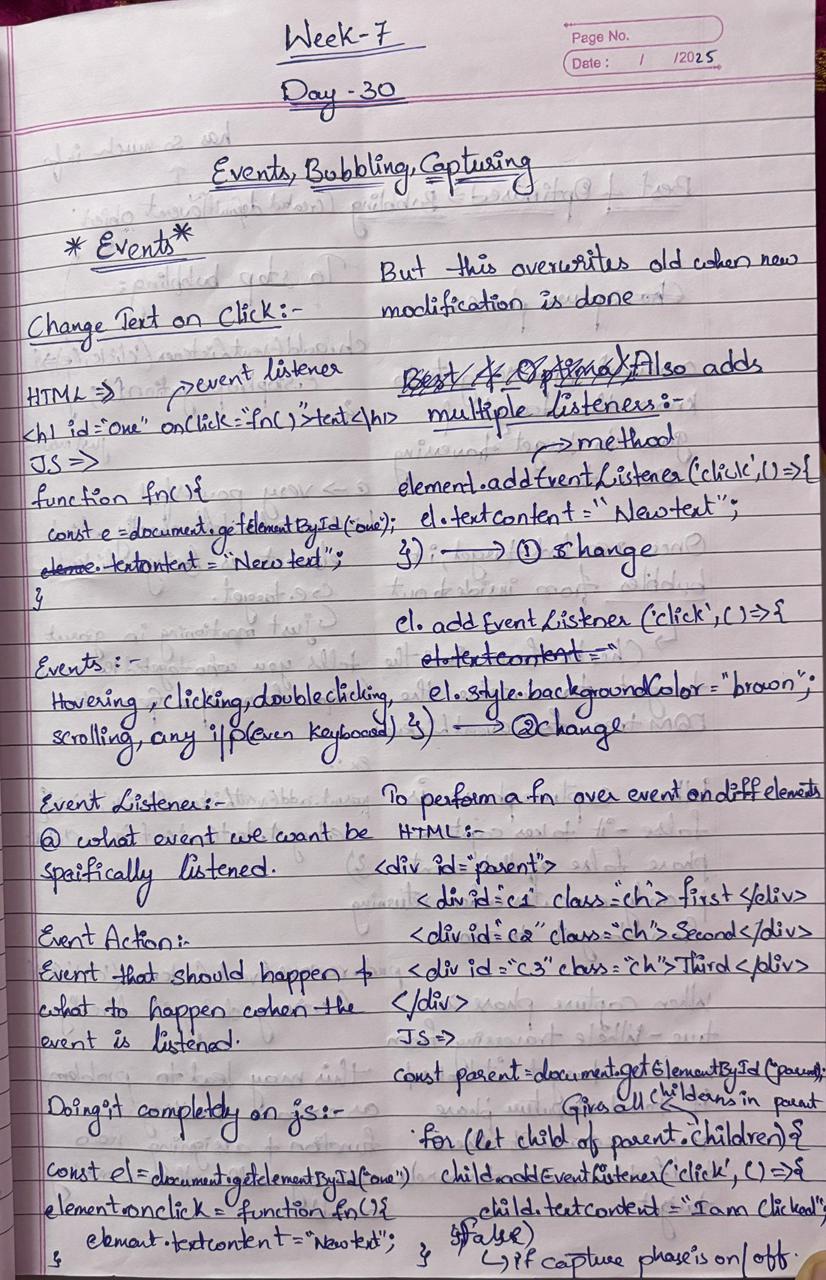 Week-7
Page No.
Date : / /2025
Day-30
Events, Bubbling, Capturing
* Events *
Change Text on Click:-
HTML => event listener
<h1 id="one" onClick="fn()">text</h1>
JS =>
function fn(){
const e=document.getElementById("one");
.textontent = "New text";
}
Events :-
Hovering, clicking, double clicking,
scrolling, any i/p(even Keyboard)
Event Listener:-
@ what event we want be
spaifically listened.
Event Action:-
Event that should happen &
what to happen when the
event is listened.
Doing it completdy on js:-
const el=document.getelementById("one")
element.onclick = function fn(){
element.textcontent="New text";
}
But this overwrites old when new
modification is done
Best & Optimal Also adds
multiple listeners:-
method
element.addEventListener('click',()=>{
el.textcontent = "New text";
}); → ① change
el.addEventListener('click',()=>{
el.textcontent = "
el.style.backgroundColor="brown";
}) → ② change
To perform a fn over event on diff elements
HTML:-
<div id="parent">
<div id="c1" class="ch"> first </div>
<div id="c2" class="ch"> Second </div>
<div id="c3" class="ch"> Third </div>
</div>
JS =>
const parent=document.getElementById("parent");
Gives all childerns in parent
for (let child of parent.children){
child.addEventListener('click', ()=>{
child.textcontent = "I am Clicked";
},false)
} ↳ if capture phase is on/off.